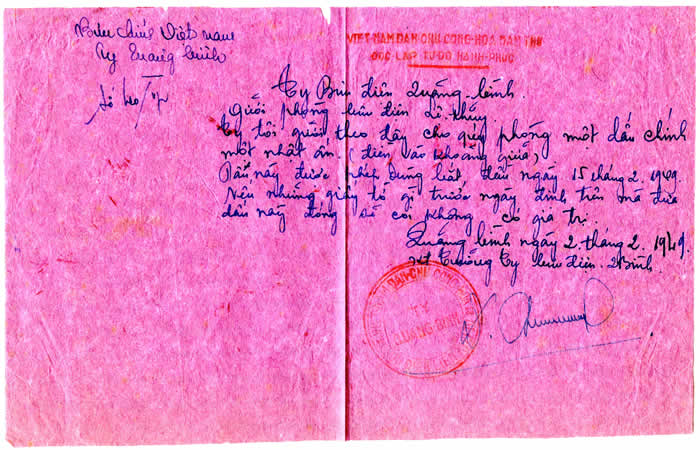 Bưu chính Việt nam
Ty Quảng bình
Số
VIỆT-NAM DÂN CHỦ CỘNG-HÒA DÂN THỨ
ĐỘC-LẬP TỰ-DO HẠNH-PHÚC
Ty Bưu điện Quảng-bình.
gưởi phòng bưu điện Lê thủy.
Ty tôi gưởi theo đây cho quý phòng một dấu chính
một nhật ấn. (điền vào khoảng giữa)
Dấu này được phép dùng bắt đầu ngày 15 tháng 2. 1949.
Nếu những giấy tờ gì trước ngày định trên mà đưa
dấu này đóng sẽ coi không có giá trị.
Quảng bình ngày 2. tháng 2. 1949.
Trưởng Ty bưu điện Q Bình.
DÂN-CHỦ CỘNG-HÒA
QUẢNG BÌNH